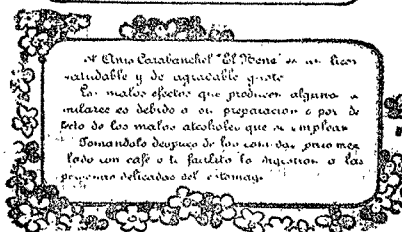 el Anis Carabanchel "El Nene" es un licor
saludable y de agradable gusto
Los malos efectos que producen algunos
milares es debido a su preparacion o por de
fecto de los malos alcoholes que se emplean
Tomandolo despues de las comidas, puro mez
lado con café o té facilita la digestion a las
personas delicadas del estomago